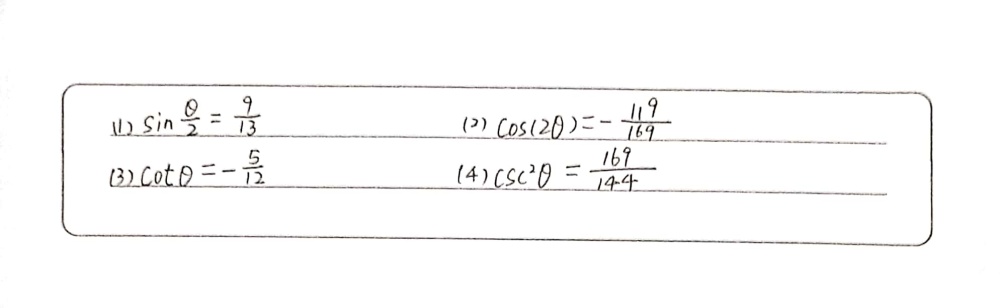 (1) sin θ/2 = 9/13 (2) cos(2θ) = - 119/169
(3) cot θ = - 5/12 (4) csc²θ = 169/144